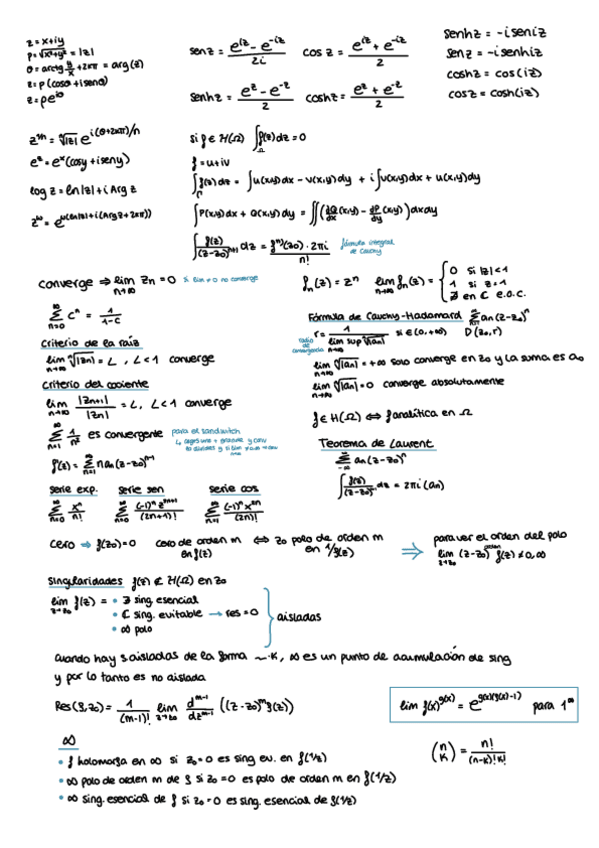 z = x+iy
ρ = √x²+y² = |z|
θ = arctg y/x + 2πn = arg(z)
z = ρ(cosθ + isenθ)
z = ρe^iθ
senz = (e^iz − e^-iz)/2i   cos z = (e^iz + e^-iz)/2
senhz = (e^z − e^-z)/2   coshz = (e^z + e^-z)/2
senhz = -iseniz
senz = -isenhiz
coshz = cos(iz)
cosz = cosh(iz)
z^1/n = ⁿ√|z| e^i(θ+2πn)/n
e^z = e^x(cosy + iseny)
log z = ln|z| + i Arg z
z^w = e^w(ln|z|+i(Argz+2πn))
si f ∈ H(Ω) ∫f(z)dz = 0
f = u+iv
∫f(z)dz = ∫u(x,y)dx − v(x,y)dy + i∫v(x,y)dx + u(x,y)dy
∫P(x,y)dx + Q(x,y)dy = ∬(dQ/dx(x,y) − dP/dy(x,y))dxdy
∫f(z)/(z-z₀)^n+1 dz = f^n)(z₀)·2πi/n!   fórmula integral de Cauchy
converge ⇒ lim n→∞ Zn = 0   si lim ≠ 0 no converge
∞Σn=0 cⁿ = 1/(1-c)
criterio de la raíz
lim n→∞ ⁿ√|zn| = L , L<1 converge
criterio del cociente
lim n→∞ |zn+1|/|zn| = L, L<1 converge
∞Σn=1 1/n² es convergente   para el sandwitch
f(z) = ∞Σn=1 n an(z-z₀)^n-1
serie exp.   serie sen   serie cos
∞Σn=0 xⁿ/n!   ∞Σn=0 (-1)ⁿ z^2n+1/(2n+1)!   ∞Σn=0 (-1)ⁿ x^2n/(2n)!
fn(z) = zⁿ   lim n→∞ fn(z) = { 0 si |z|<1
1 si z=1
∄ en ℂ e.o.c.
Fórmula de Cauchy-Hadamard Σ an(z-z₀)ⁿ
radio de convergencia r = 1/lim sup ⁿ√|an|   si ∈ (0,+∞)   D(z₀,r)
lim n→∞ ⁿ√|an| = +∞ solo converge en z₀ y la suma es a₀
lim n→∞ ⁿ√|an| = 0 converge absolutamente
f ∈ H(Ω) ⇔ f analítica en Ω
Teorema de Laurent
∞Σ-∞ an(z-z₀)ⁿ
∫f(z)/(z-z₀) dz = 2πi(an)
cero ⇒ f(z₀)=0   cero de orden m en f(z) ⇔ z₀ polo de orden m en 1/f(z)   ⇒   para ver el orden del polo
lim z→z₀ (z-z₀)^orden f(z) ≠ 0,∞
Singularidades f(z) ∉ H(Ω) en z₀
lim z→z₀ f(z) = • ∄ sing. esencial
• ℂ sing. evitable → res = 0
• ∞ polo
aisladas
cuando hay s aisladas de la forma ~·k, ∞ es un punto de acumulación de sing
y por lo tanto no es aislada
Res(f,z₀) = 1/(m-1)! lim z→z₀ d^m-1/dz^m-1 ((z-z₀)^m f(z))
lim f(x)^g(x) = e^g(x)(f(x)-1)   para 1^∞
∞
• f holomorfa en ∞ si z₀=0 es sing ev. en f(1/z)
• ∞ polo de orden m de f si z₀=0 es polo de orden m en f(1/z)
• ∞ sing. esencial de f si z₀=0 es sing. esencial de f(1/z)
(n k) = n!/(n-k)!k!